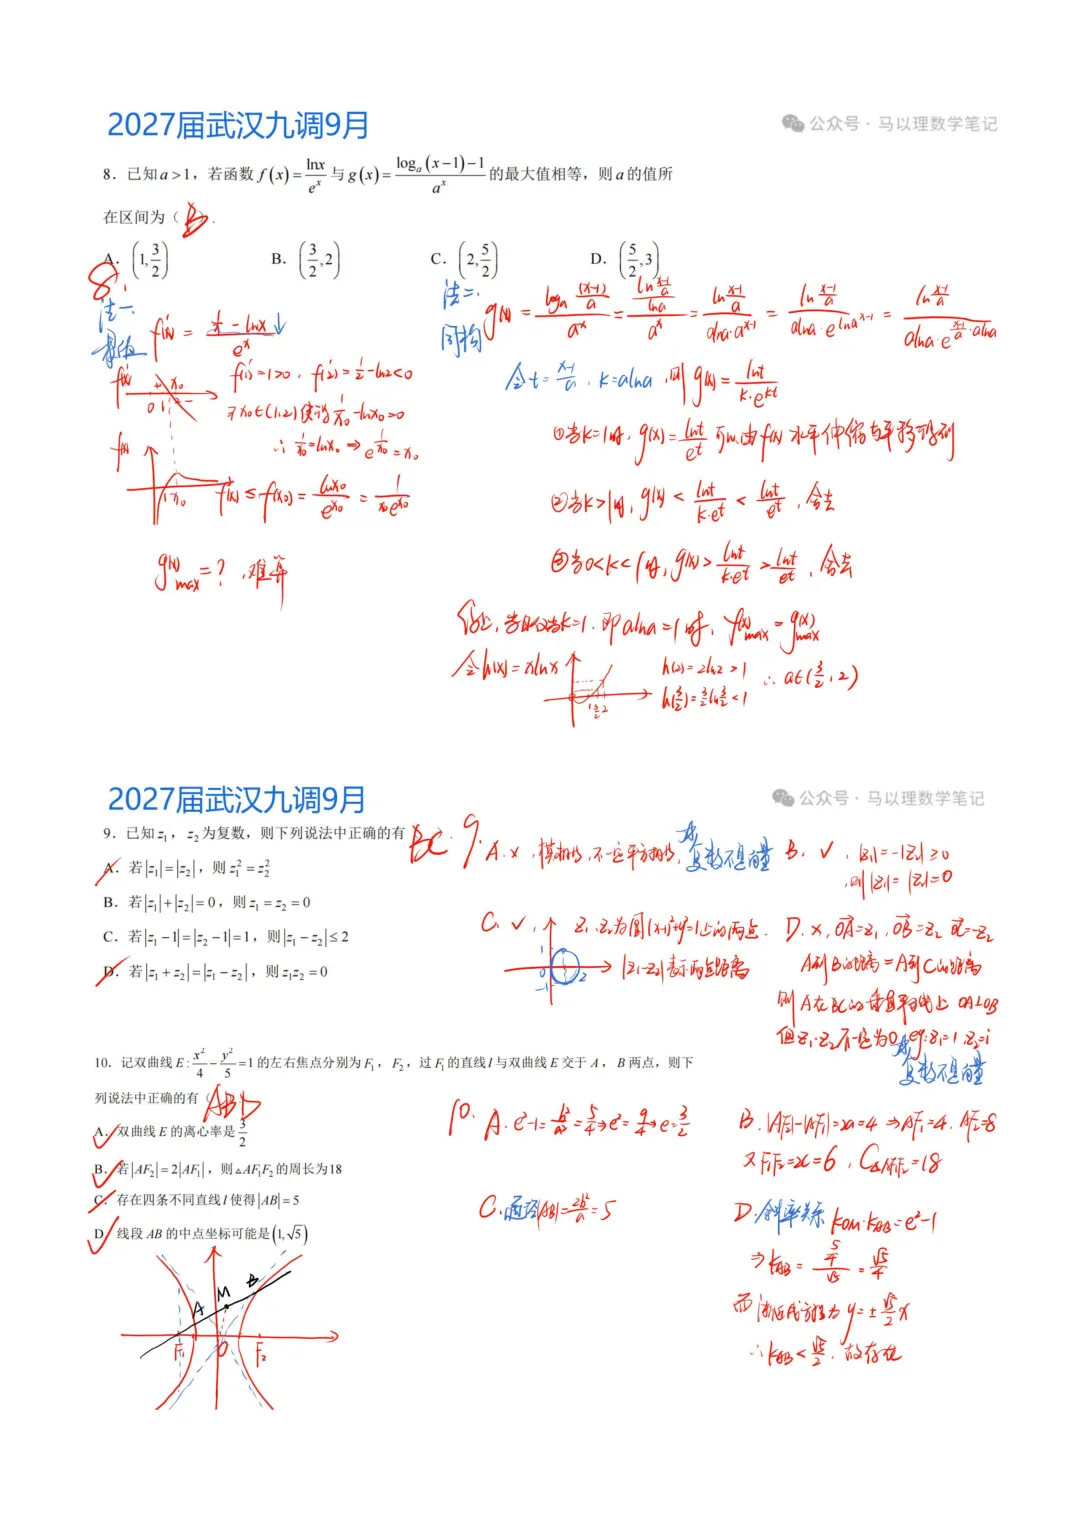 2027届武汉九调9月
公众号 · 马以理数学笔记
8. 已知 a>1，若函数 f(x)=lnx/e^x 与 g(x)=(log_a(x-1)-1)/a^x 的最大值相等，则 a 的值所
在区间为（ B ）.
A. (1, 3/2) B. (3/2, 2) C. (2, 5/2) D. (5/2, 3)
8.
法一.
f'(x) = (1/x - lnx)/e^x ↓
f'(1)=1>0, f'(2)=1/2-ln2<0
∃x₀∈(1,2)使得 1/x₀-lnx₀=0
∴ 1/x₀=lnx₀ ⇒ e^(1/x₀)=x₀
f(x) ≤ f(x₀) = lnx₀/e^x₀ = 1/(x₀e^x₀)
g(x)max = ? , 难算
法二.
同构
g(x) = log_a((x-1)/a)/a^x = (ln((x-1)/a)/lna)/a^x = ln((x-1)/a)/(alna·a^(x-1)) = ln((x-1)/a)/(alna·e^(lna^(x-1))) = ln((x-1)/a)/(alna·e^((x-1)/a·alna))
令 t=(x-1)/a, k=alna, 则 g(x)=lnt/(k·e^(kt))
①当k=1时, g(x)=lnt/e^t 可以由f(x)水平伸缩与平移得到
②当k>1时, g(x) < lnt/(k·e^t) < lnt/e^t, 舍去
③当0<k<1时, g(x) > lnt/(k·e^t) > lnt/e^t, 舍去
综上, 当且仅当k=1. 即alna=1时, f(x)max = g(x)max
令h(x)=xlnx
h(2)=2ln2>1
h(3/2)=3/2ln3/2<1
∴ a∈(3/2, 2)
2027届武汉九调9月
公众号 · 马以理数学笔记
9. 已知 z₁，z₂ 为复数，则下列说法中正确的有 BC .
A. 若 |z₁|=|z₂|，则 z₁²=z₂²
B. 若 |z₁|+|z₂|=0，则 z₁=z₂=0
C. 若 |z₁-1|=|z₂-1|=1，则 |z₁-z₂|≤2
D. 若 |z₁+z₂|=|z₁-z₂|，则 z₁z₂=0
9. A. ×, 模相等, 不一定平方相等, 复数不是向量
B. ✓, |z₁|=-|z₂|≥0
则|z₁|=|z₂|=0
C. ✓, z₁, z₂为圆(x-1)²+y²=1上的两点.
|z₁-z₂|表示两点距离
D. ×, OA=z₁, OB=z₂ OC=-z₂
A到B的距离=A到C的距离
则A在BC的垂直平分线上 OA⊥OB
但z₁·z₂不一定为0, eg: z₁=1, z₂=i
复数不是向量
10. 记双曲线 E: x²/4 - y²/5 = 1 的左右焦点分别为 F₁，F₂，过 F₁ 的直线 l 与双曲线 E 交于 A，B 两点，则下
列说法中正确的有（ ABD
A. 双曲线 E 的离心率是 3/2
B. 若 |AF₂|=2|AF₁|，则 △AF₁F₂ 的周长为18
C. 存在四条不同直线 l 使得 |AB|=5
D. 线段 AB 的中点坐标可能是 (1, √5)
A M B
F₁ O F₂
10. A. e²-1=b²/a²=5/4 ⇒ e²=9/4 ⇒ e=3/2
B. |AF₂|-|AF₁|=2a=4 ⇒ AF₁=4, AF₂=8
又F₁F₂=2c=6, C△AF₁F₂=18
C. 通径|AB|=2b²/a=5
D. 斜率关系 k_OM·k_AB=e²-1
⇒ k_AB = (5/4)/√5 = √5/4
而渐近线方程为 y=±√5/2 x
∴ k_AB < √5/2, 故存在